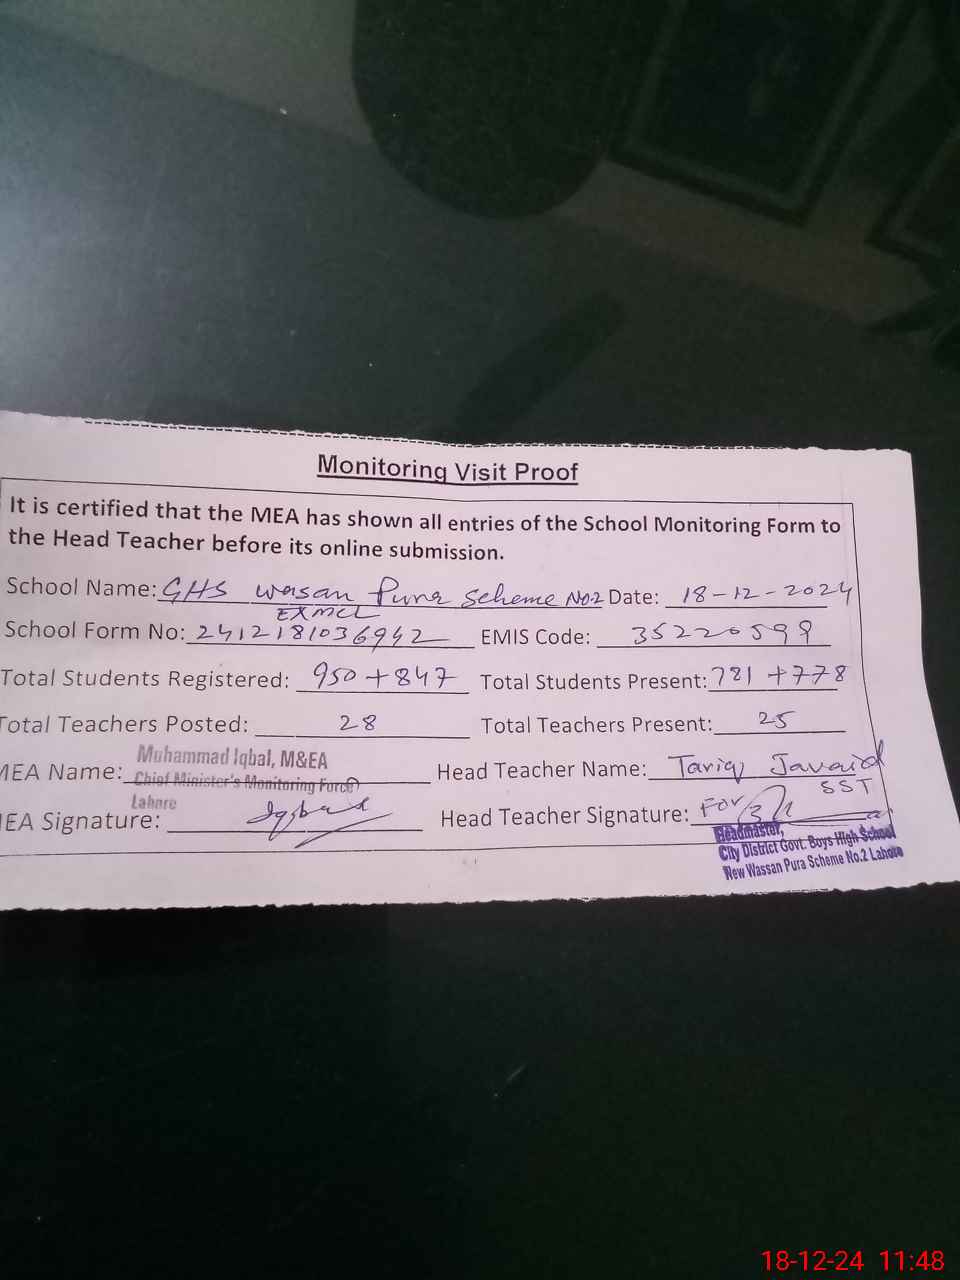 Monitoring Visit Proof
It is certified that the MEA has shown all entries of the School Monitoring Form to
the Head Teacher before its online submission.
School Name: GHS Wasan Pura Scheme No2 Date: 18-12-2024
EXMCL
School Form No: 2412181036942 EMIS Code: 35220599
Total Students Registered: 950+847 Total Students Present: 781+778
Total Teachers Posted: 28 Total Teachers Present: 25
Muhammad Iqbal, M&EA
MEA Name: Chief Minister's Monitoring Force Head Teacher Name: Tariq Javaid
Lahore SST
MEA Signature: Iqbal Head Teacher Signature: For
Headmaster,
City District Govt. Boys High School
New Wassan Pura Scheme No.2 Lahore
18-12-24 11:48